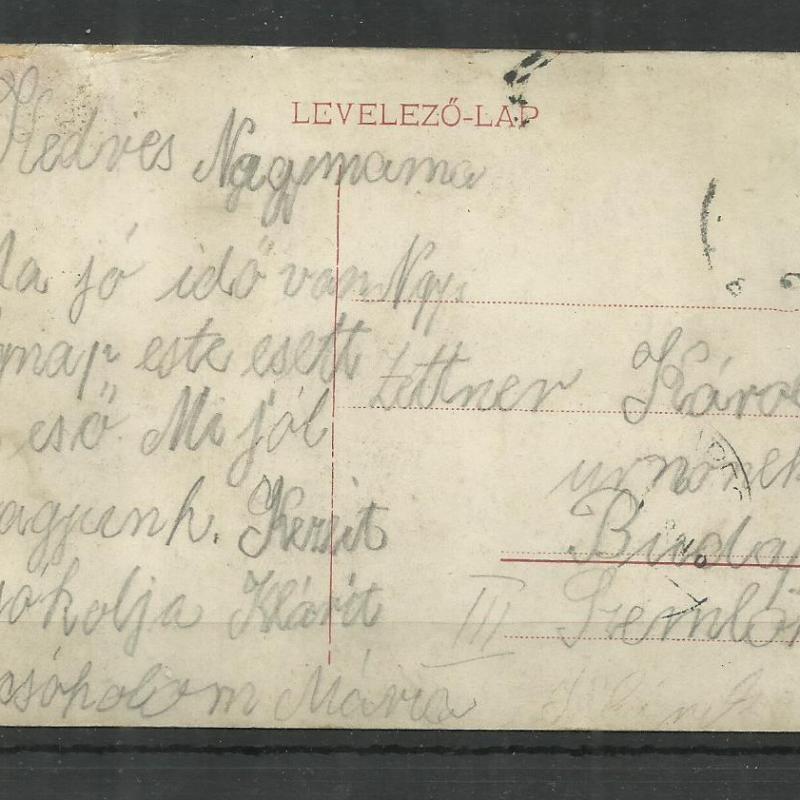 LEVELEZŐ-LAP
Kedves Nagymama
Ma jó idő van
gnap este esett
eső. Mi jól
agyunk. Kezeit
sókolja Klárit
csókolom Mária
Ngs.
Zettner Károl
urnőnek
Budap
III Szemlőh